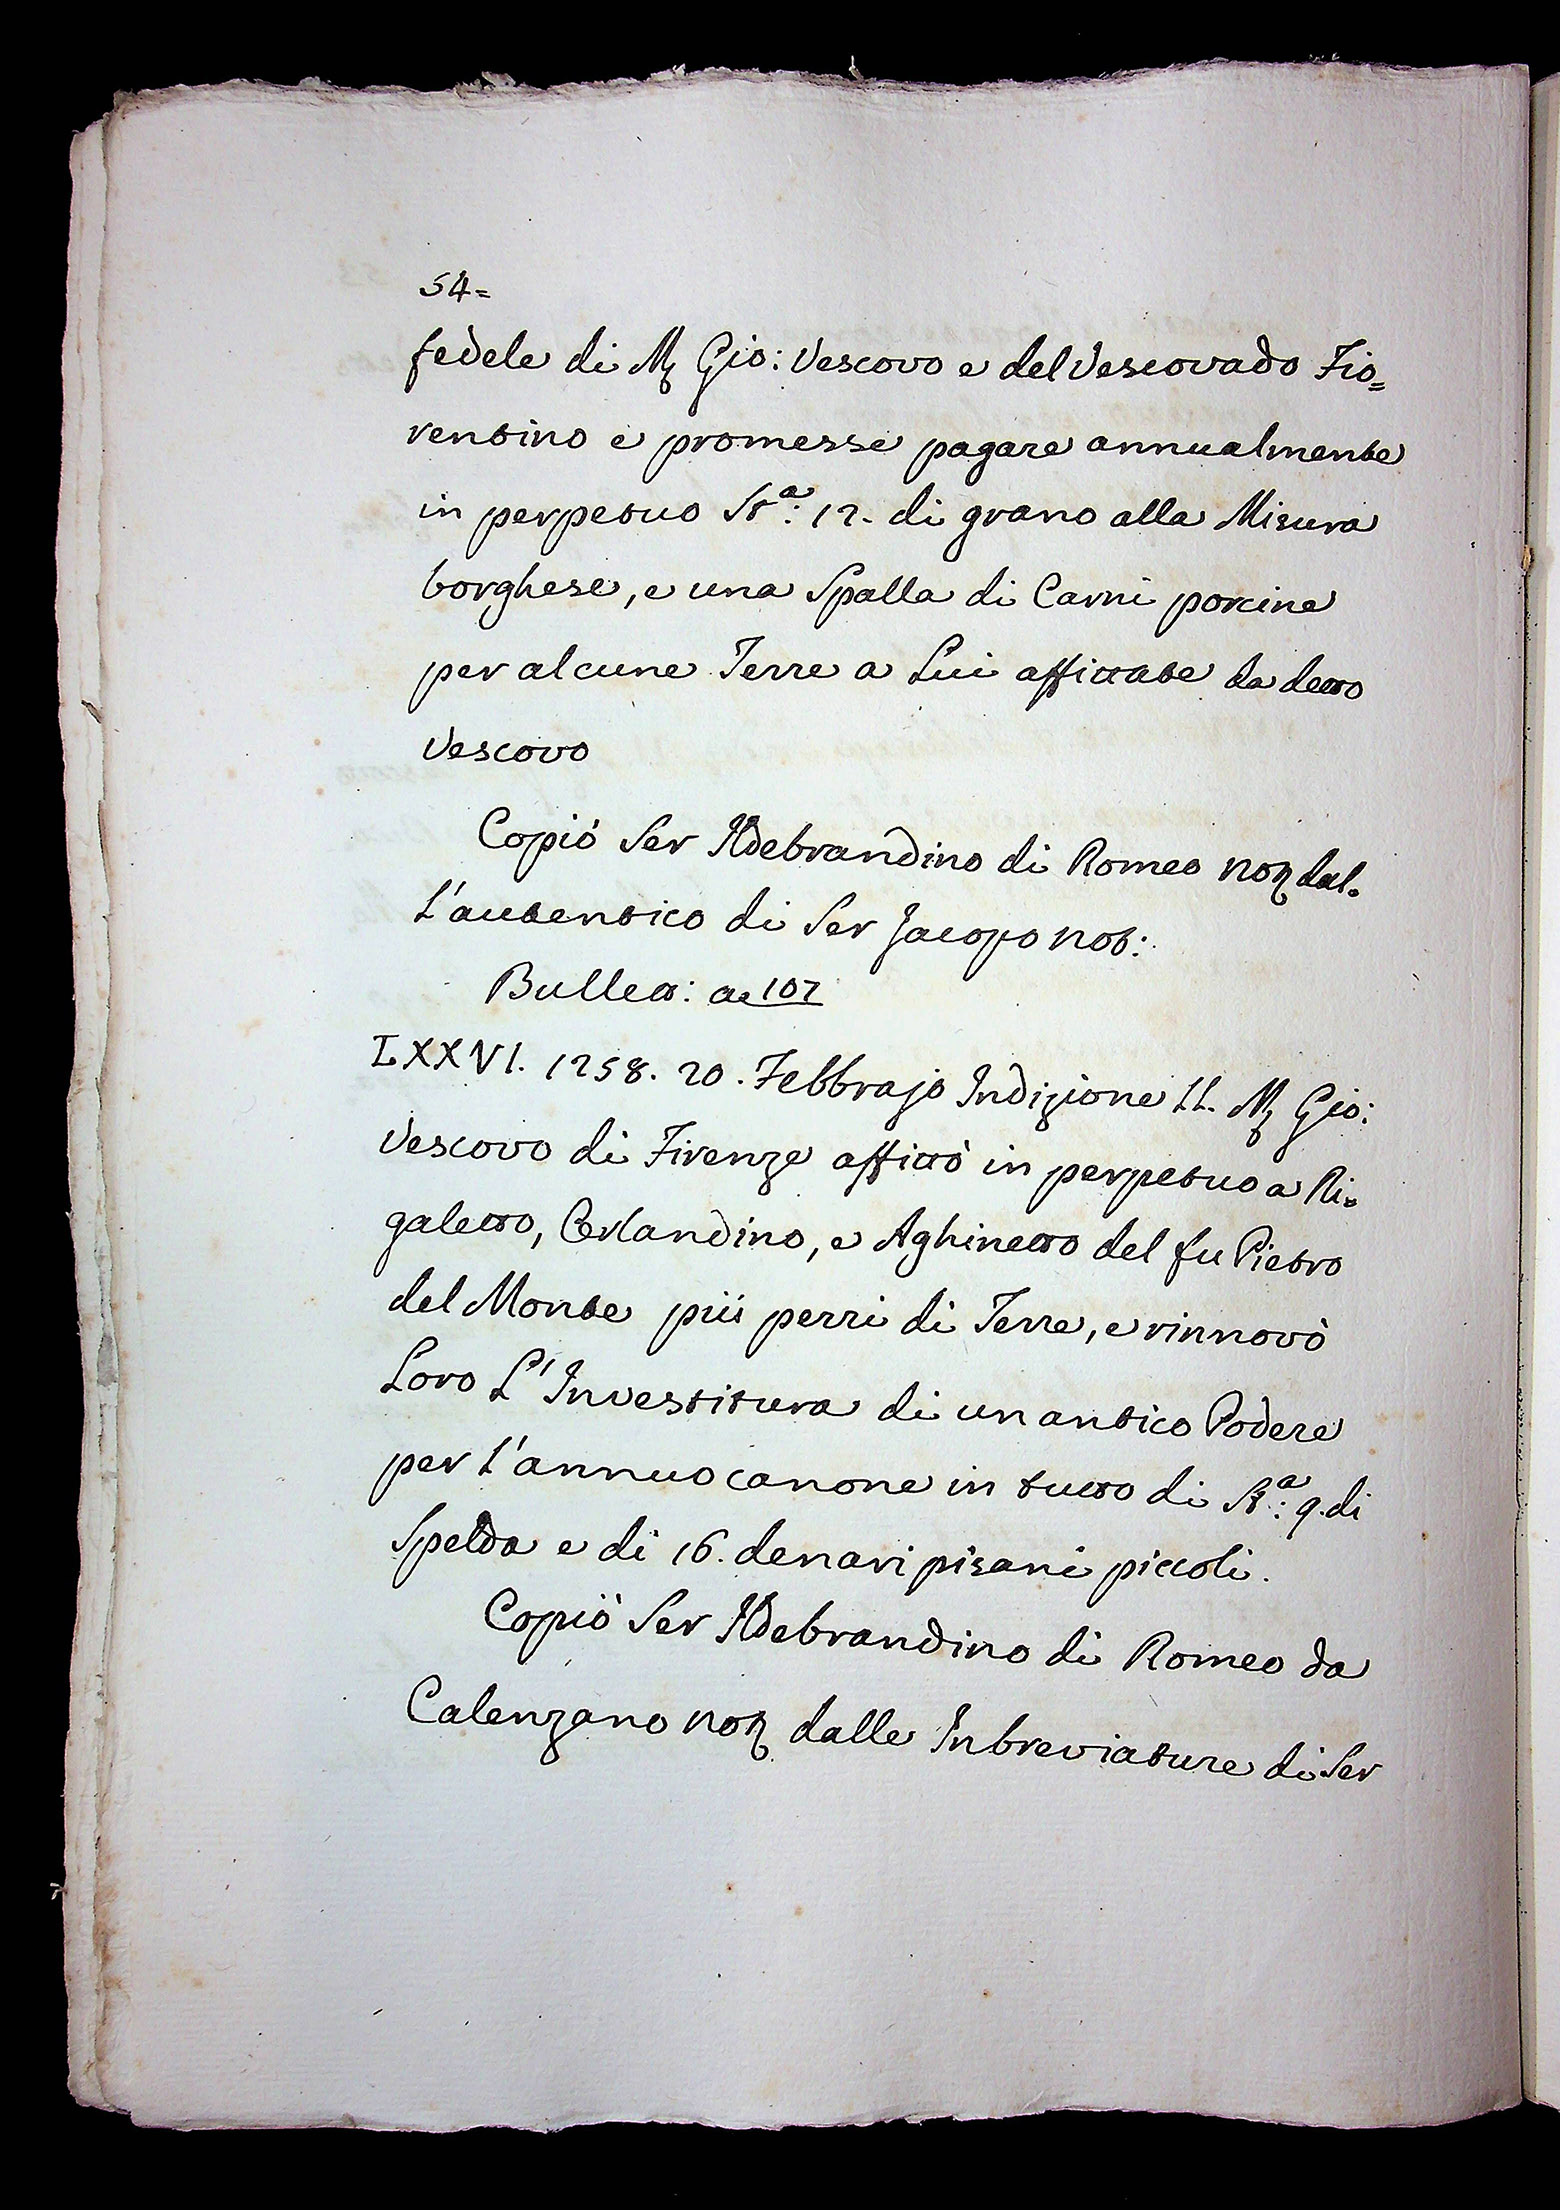 54=
fedele di Mr Gio: Vescovo e del Vescovado Fio=
rentino e promesse pagare annualmente
in perpetuo Sta: 12. di grano alla Misura
borghese, e una Spalla di Carni porcine
per alcune Terre a Lui affittate da detto
Vescovo
Copiò Ser Ildebrandino di Romeo Nor dal=
l'autentico di Ser Jacopo Not:
Bullett: a. 107
LXXVI. 1258. 20. Febbrajo Indizione II. Mr Gio:
Vescovo di Firenze affittò in perpetuo a Ri=
galetto, Orlandino, e Aghinetto del fu Pietro
del Monte più pezzi di Terre, e rinnovò
Loro L'Investitura di un antico Podere
per l'annuo canone in tutto di Sta: 9. di
Spelda e di 16. denari pisani piccoli.
Copiò Ser Ildebrandino di Romeo da
Calenzano Nor dalle Inbreviature di Ser